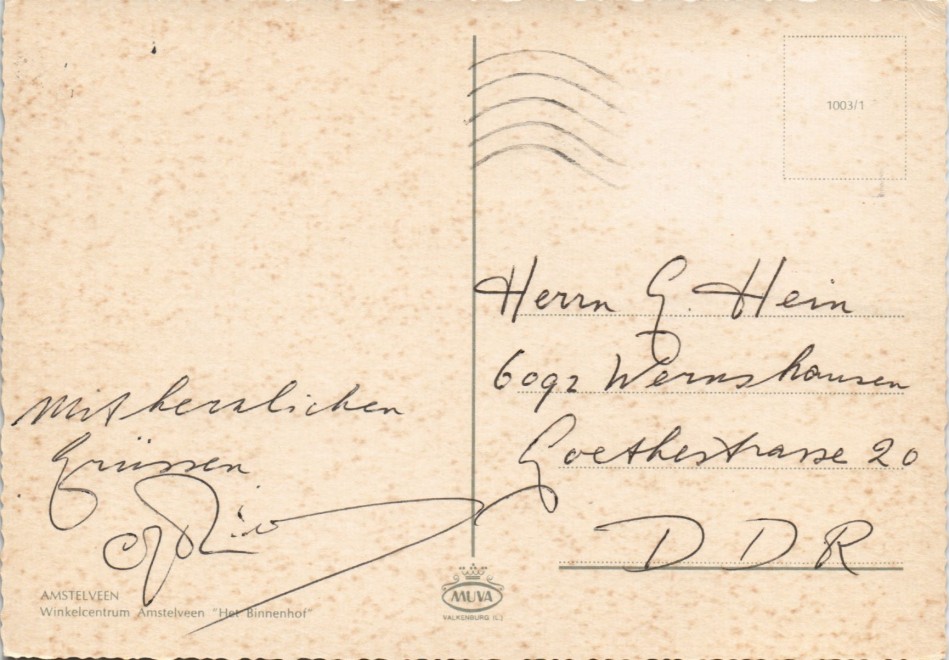 1003/1
Herrn G. Hein
6092 Wernshausen
Goethestrasse 20
DDR
Mit herzlichen
Grüssen
AMSTELVEEN
Winkelcentrum Amstelveen "Het Binnenhof"
MUVA
VALKENBURG (L.)